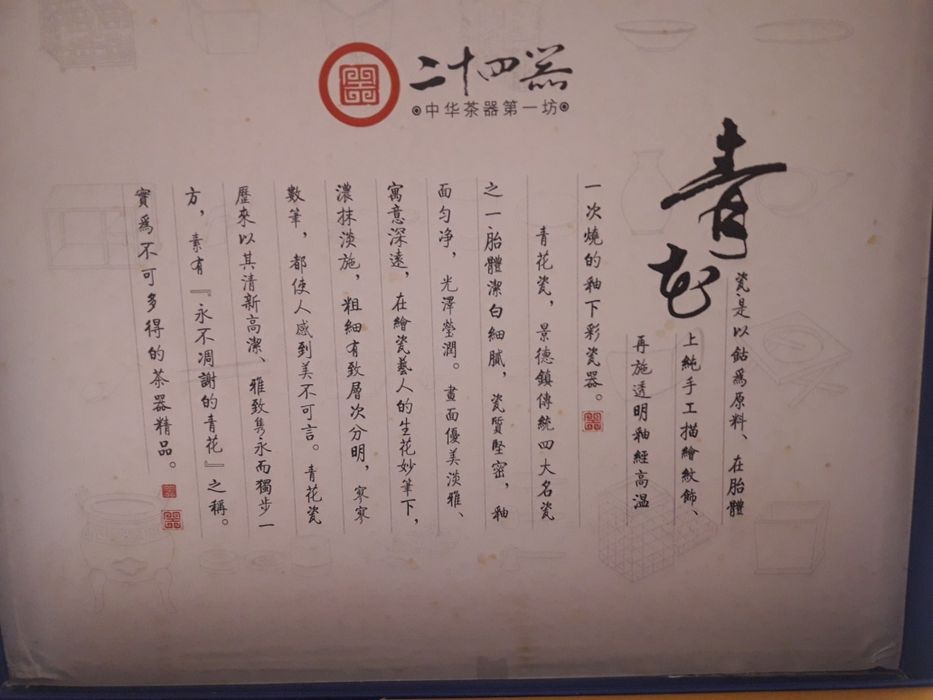 二十四器
中华茶器第一坊
青花
瓷是以鈷爲原料、在胎體
上純手工描繪紋飾、
再施透明釉經高溫
一次燒的釉下彩瓷器。
青花瓷，景德鎮傳統四大名瓷
之一。胎體潔白細膩，瓷質堅密，釉
面勻净，光澤瑩潤。畫面優美淡雅、
寓意深遠，在繪瓷藝人的生花妙筆下，
濃抹淡施，粗細有致層次分明，寥寥
數筆，都使人感到美不可言。青花瓷
歷來以其清新高潔、雅致雋永而獨步一
方，素有『永不凋謝的青花』之稱。
實爲不可多得的茶器精品。